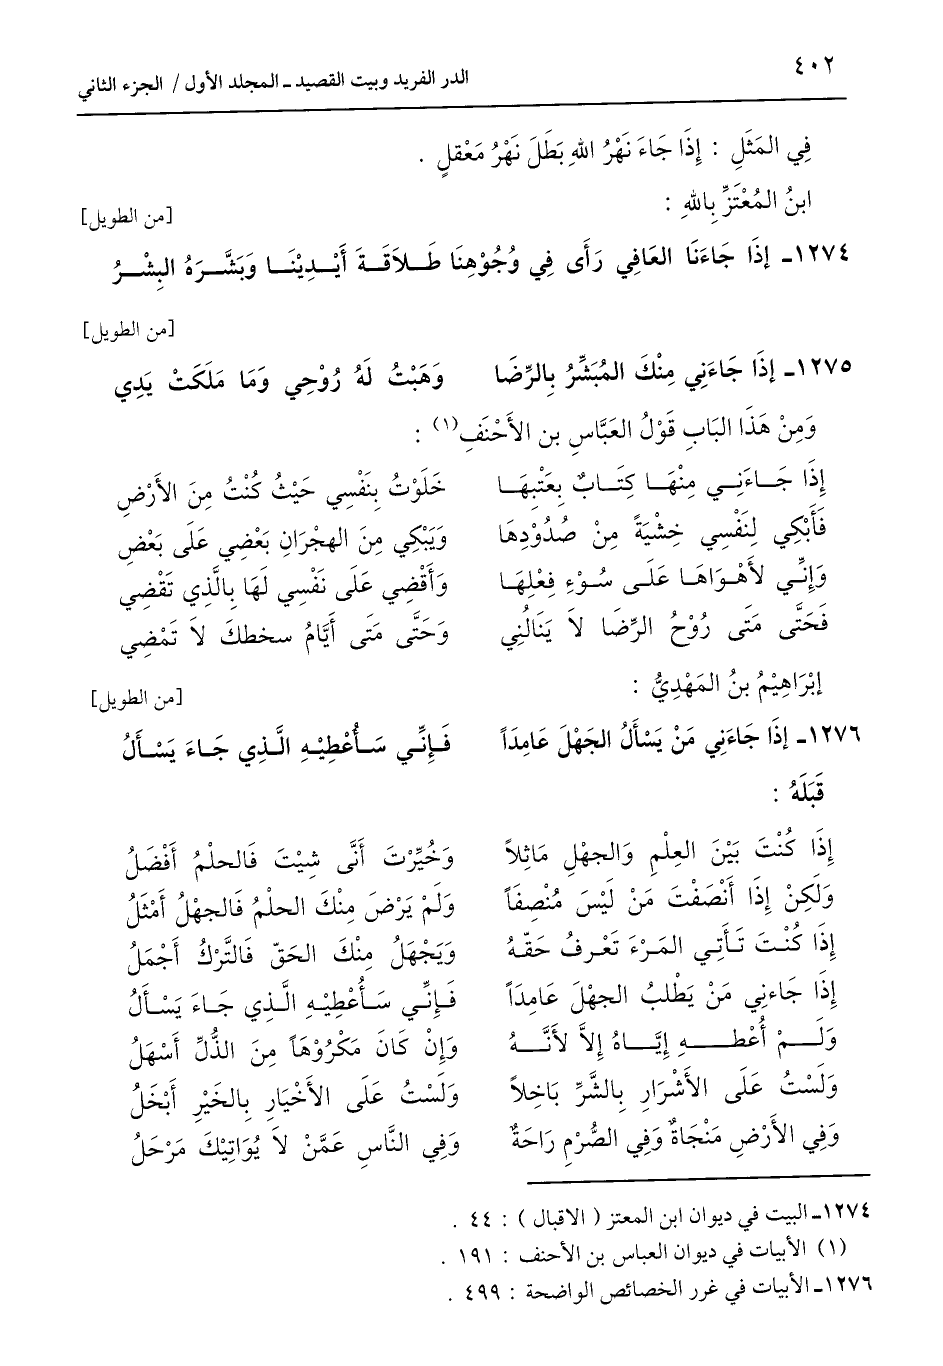 ٤٠٢ الدر الفريد وبيت القصيد ـ المجلد الأول / الجزء الثاني
فِي المَثَلِ : إِذَا جَاءَ نَهْرُ اللهِ بَطَلَ نَهْرُ مَعْقلٍ .
ابنُ المُعْتَزِّ بِاللهِ : [من الطويل]
١٢٧٤ـ إِذَا جَاءَنَا العَافِي رَأَى فِي وُجُوْهِنَا طَلاَقَةَ أَيْدِيْنَا وَبَشَّرَهُ البِشْرُ
[من الطويل]
١٢٧٥ـ إِذَا جَاءَنِي مِنْكَ المُبَشِّرُ بِالرِّضَا وَهَبْتُ لَهُ رُوْحِي وَمَا مَلَكَتْ يَدِي
وَمِنْ هَذَا البَابِ قَوْلُ العَبَّاسِ بن الأَحْنَفِ(١) :
إِذَا جَاءَنِي مِنْهَا كِتَابٌ بِعَتْبِهَا خَلَوْتُ بِنَفْسِي حَيْثُ كُنْتُ مِنَ الأَرْضِ
فَأَبْكِي لِنَفْسِي خِشْيَةً مِنْ صُدُوْدِهَا وَيَبْكِي مِنَ الهِجْرَانِ بَعْضِي عَلَى بَعْضِ
وَإِنِّي لأَهْوَاهَا عَلَى سُوْءِ فِعْلِهَا وَأَقْضِي عَلَى نَفْسِي لَهَا بِالَّذِي تَقْضِي
فَحَتَّى مَتَى رُوْحُ الرِّضَا لاَ يَنَالُنِي وَحَتَّى مَتَى أَيَّامُ سخطكَ لاَ تَمْضِي
إِبْرَاهِيْمُ بنُ المَهْدِيُّ : [من الطويل]
١٢٧٦ـ إِذَا جَاءَنِي مَنْ يَسْأَلُ الجَهْلَ عَامِدَاً فَإِنِّي سَأُعْطِيْهِ الَّذِي جَاءَ يَسْأَلُ
قَبَلَهُ :
إِذَا كُنْتَ بَيْنَ العِلْمِ وَالجهْلِ مَاثِلاً وَخُيِّرْتَ أَنَّى شِيْتَ فَالحلْمُ أَفْضَلُ
وَلَكِنْ إِذَا أَنْصَفْتَ مَنْ لَيْسَ مُنْصِفَاً وَلَمْ يَرْضَ مِنْكَ الحلْمُ فَالجهْلُ أَمْثَلُ
إِذَا كُنْتَ تَأتِي المَرْءَ تَعْرِفُ حَقّهُ وَيَجْهَلُ مِنْكَ الحَقّ فَالتَّرْكُ أَجْمَلُ
إِذَا جَاءنِي مَنْ يَطْلبُ الجهْلَ عَامِدَاً فَإِنِّي سَأُعْطِيْهِ الَّذِي جَاءَ يَسْأَلُ
وَلَمْ أُعْطهِ إِيَّاهُ إِلاَّ لأَنَّهُ وَإِنْ كَانَ مَكْرُوْهَاً مِنَ الذُّلِّ أَسْهَلُ
وَلَسْتُ عَلَى الأَشْرَارِ بِالشَّرِّ بَاخِلاً وَلَسْتُ عَلَى الأَخْيَارِ بِالخَيْرِ أَبْخَلُ
وَفِي الأَرْضِ مَنْجَاةٌ وَفِي الصُّرْمِ رَاحَةٌ وَفِي النَّاسِ عَمَّنْ لاَ يُوَاتِيْكَ مَرْحَلُ
١٢٧٤ـ البيت في ديوان ابن المعتز ( الاقبال ) : ٤٤ .
(١) الأبيات في ديوان العباس بن الأحنف : ١٩١ .
١٢٧٦ـ الأبيات في غرر الخصائص الواضحة : ٤٩٩ .